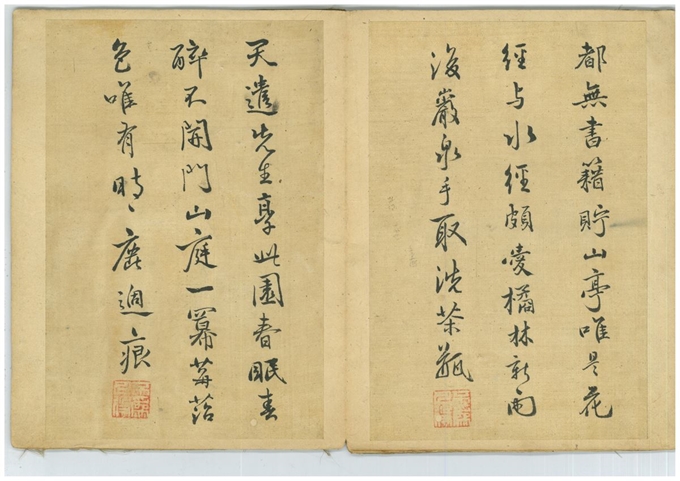 都無書籍貯山亭唯是花
經与水經頗愛橘林新雨
後巖泉手取洗茶瓶
天遣先生享此園春眠春
醉不開門山庭一冪莓苔
色唯有時〻鹿過痕